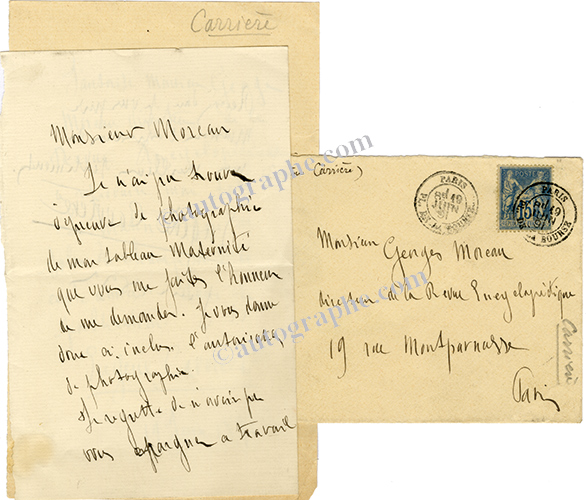 Carrière
Monsieur Moreau
Je n'ai pu trouver
d'épreuve de photographie
de mon tableau Maternité
que vous me faites l'honneur
de me demander. Je vous donne
donc ci inclus l'autorisation
de photographie.
Je regrette de n'avoir pu
vous épargner ce travail
Carrière)
PARIS
PL. DE LA BOURSE
POSTE
15
PARIS
DE LA BOURSE
Monsieur
Georges Moreau
directeur de la Revue Encyclopédique
19 rue Montparnasse
Paris
Carrière
©autographe.com
©autographe.com